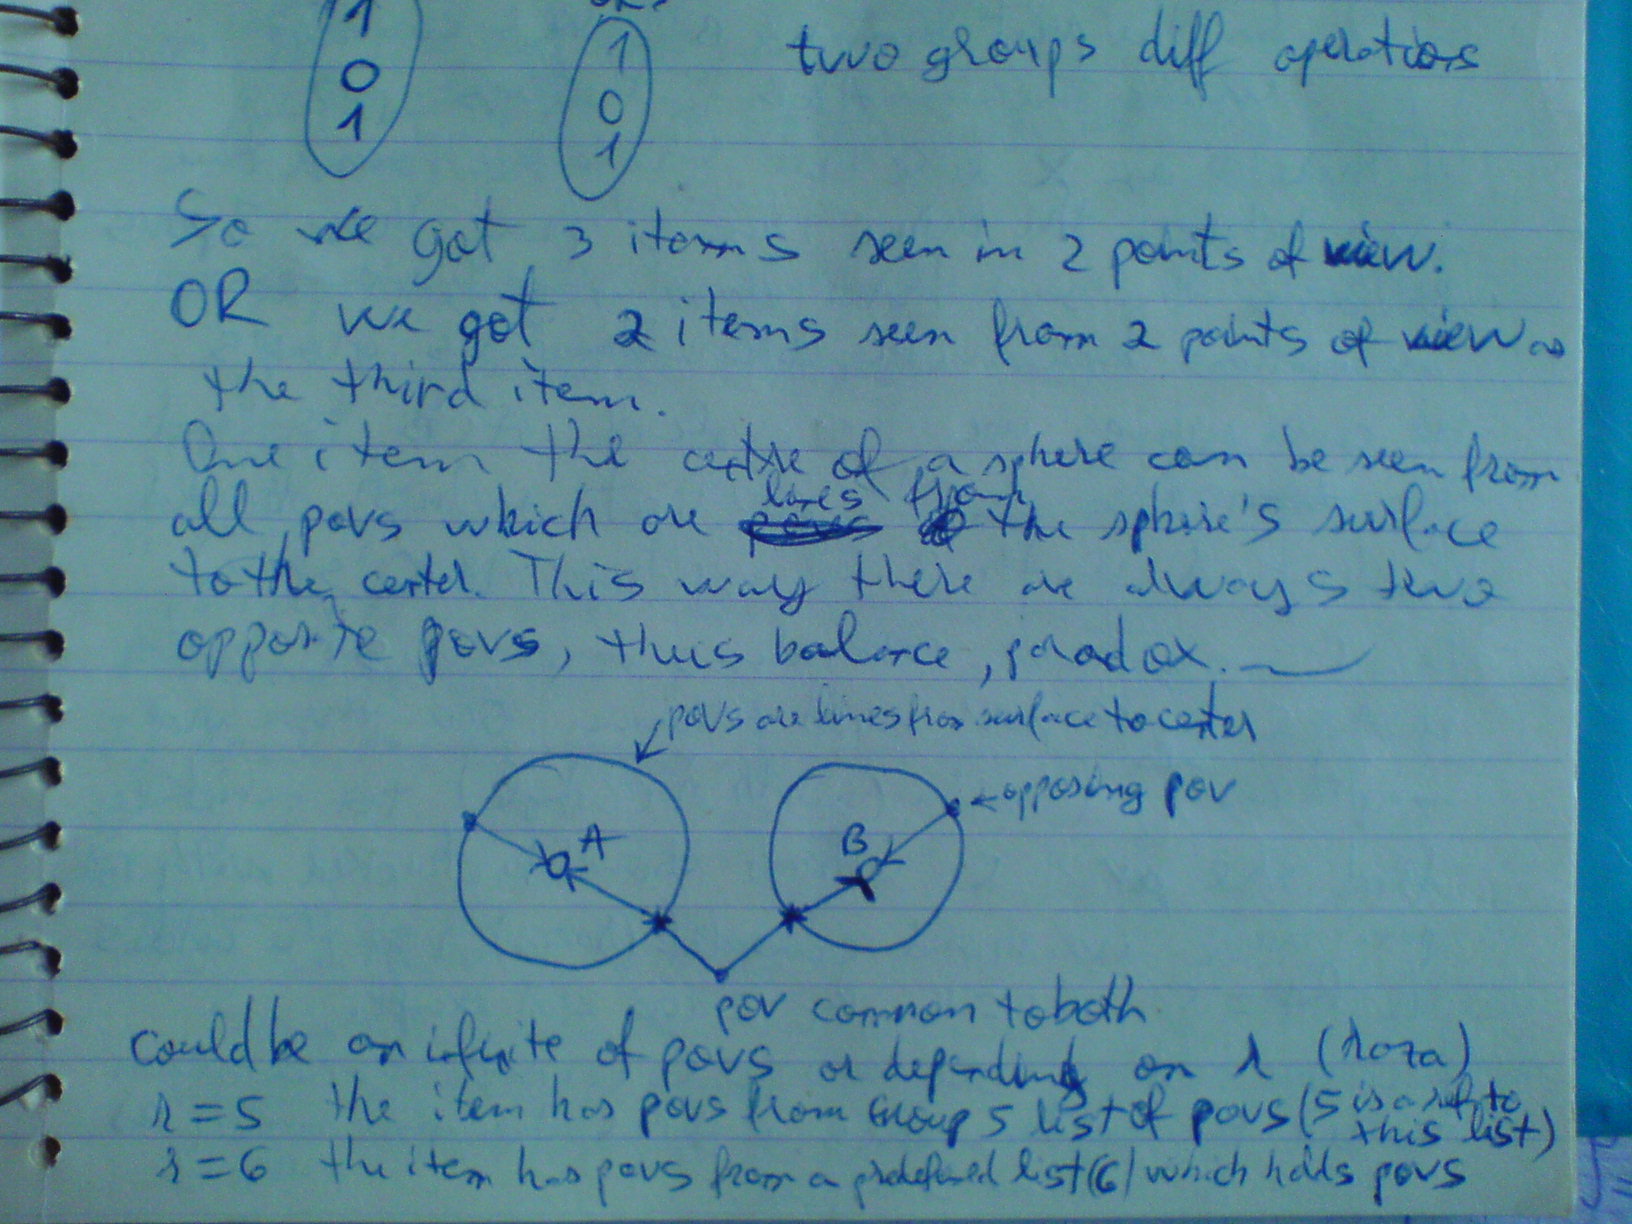 1
0
1
1
0
1
two groups diff operations
So we got 3 items seen in 2 points of view.
OR we got 2 items seen from 2 points of view as
the third item.
One item the centre of a sphere can be seen from
all povs which are lines from the sphere's surface
to the center. This way there are always two
opposite povs, thus balance, paradox.
povs are lines from surface to center
opposing pov
A
B
pov common to both
could be an infinite of povs or depending on r (raza)
r=5 the item has povs from Group 5 list of povs (5 is a ref to
this list)
r=6 the item has povs from a predefined list (6) which holds povs